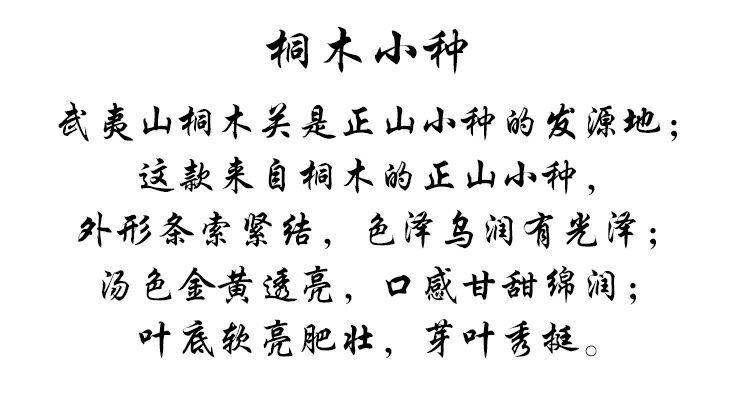 桐木小种
武夷山桐木关是正山小种的发源地；
这款来自桐木的正山小种，
外形条索紧结，色泽乌润有光泽；
汤色金黄透亮，口感甘甜绵润；
叶底软亮肥壮，芽叶秀挺。